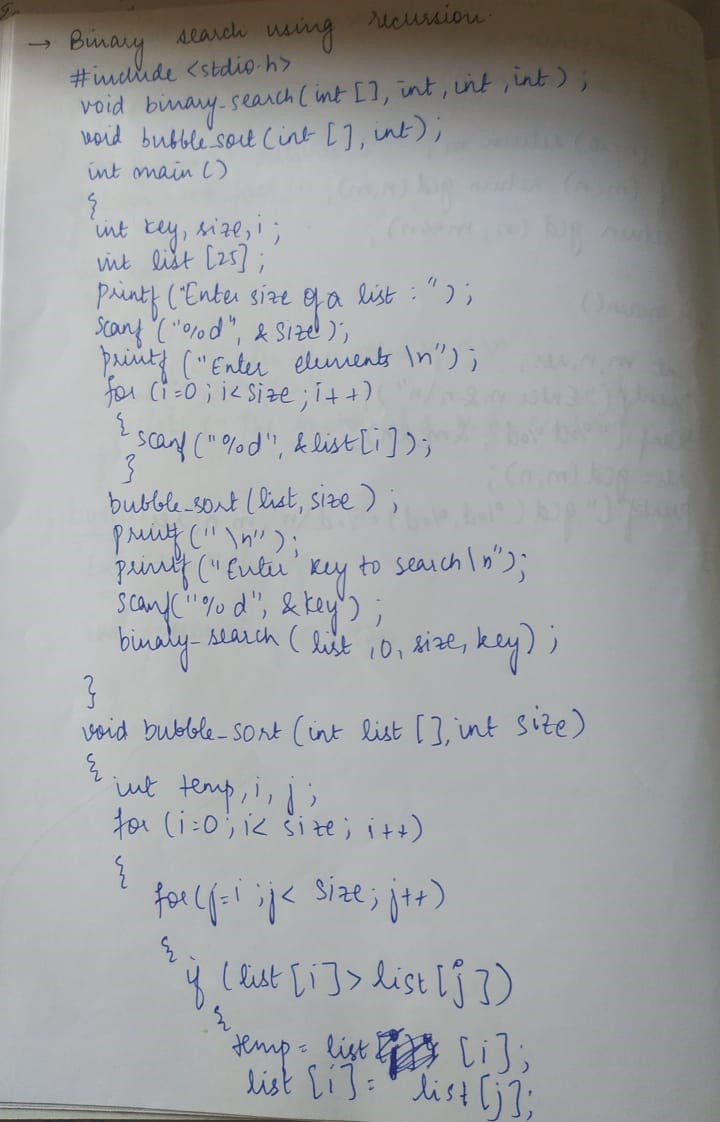 → Binary search using recussion.
#include <stdio.h>
void binary_search(int [], int, int, int);
void bubble_sort(int [], int);
int main()
{
int key, size, i;
int list [25];
printf("Enter size of a list : ");
scanf ("%d", & size);
printf ("Enter elements \n");
for (i=0; i< size; i++)
{ scanf("%d", &list[i]);
}
bubble_sort(list, size);
printf("\n");
printf("Enter key to search\n");
scanf("%d", &key);
binary_search (list, 0, size, key);
}
void bubble_sort (int list [], int size)
{ int temp, i, j;
for (i=0; i< size; i++)
{
for(j=i; j< size; j++)
{ if (list [i] > list [j])
{ temp = list [i];
list [i] = list [j];